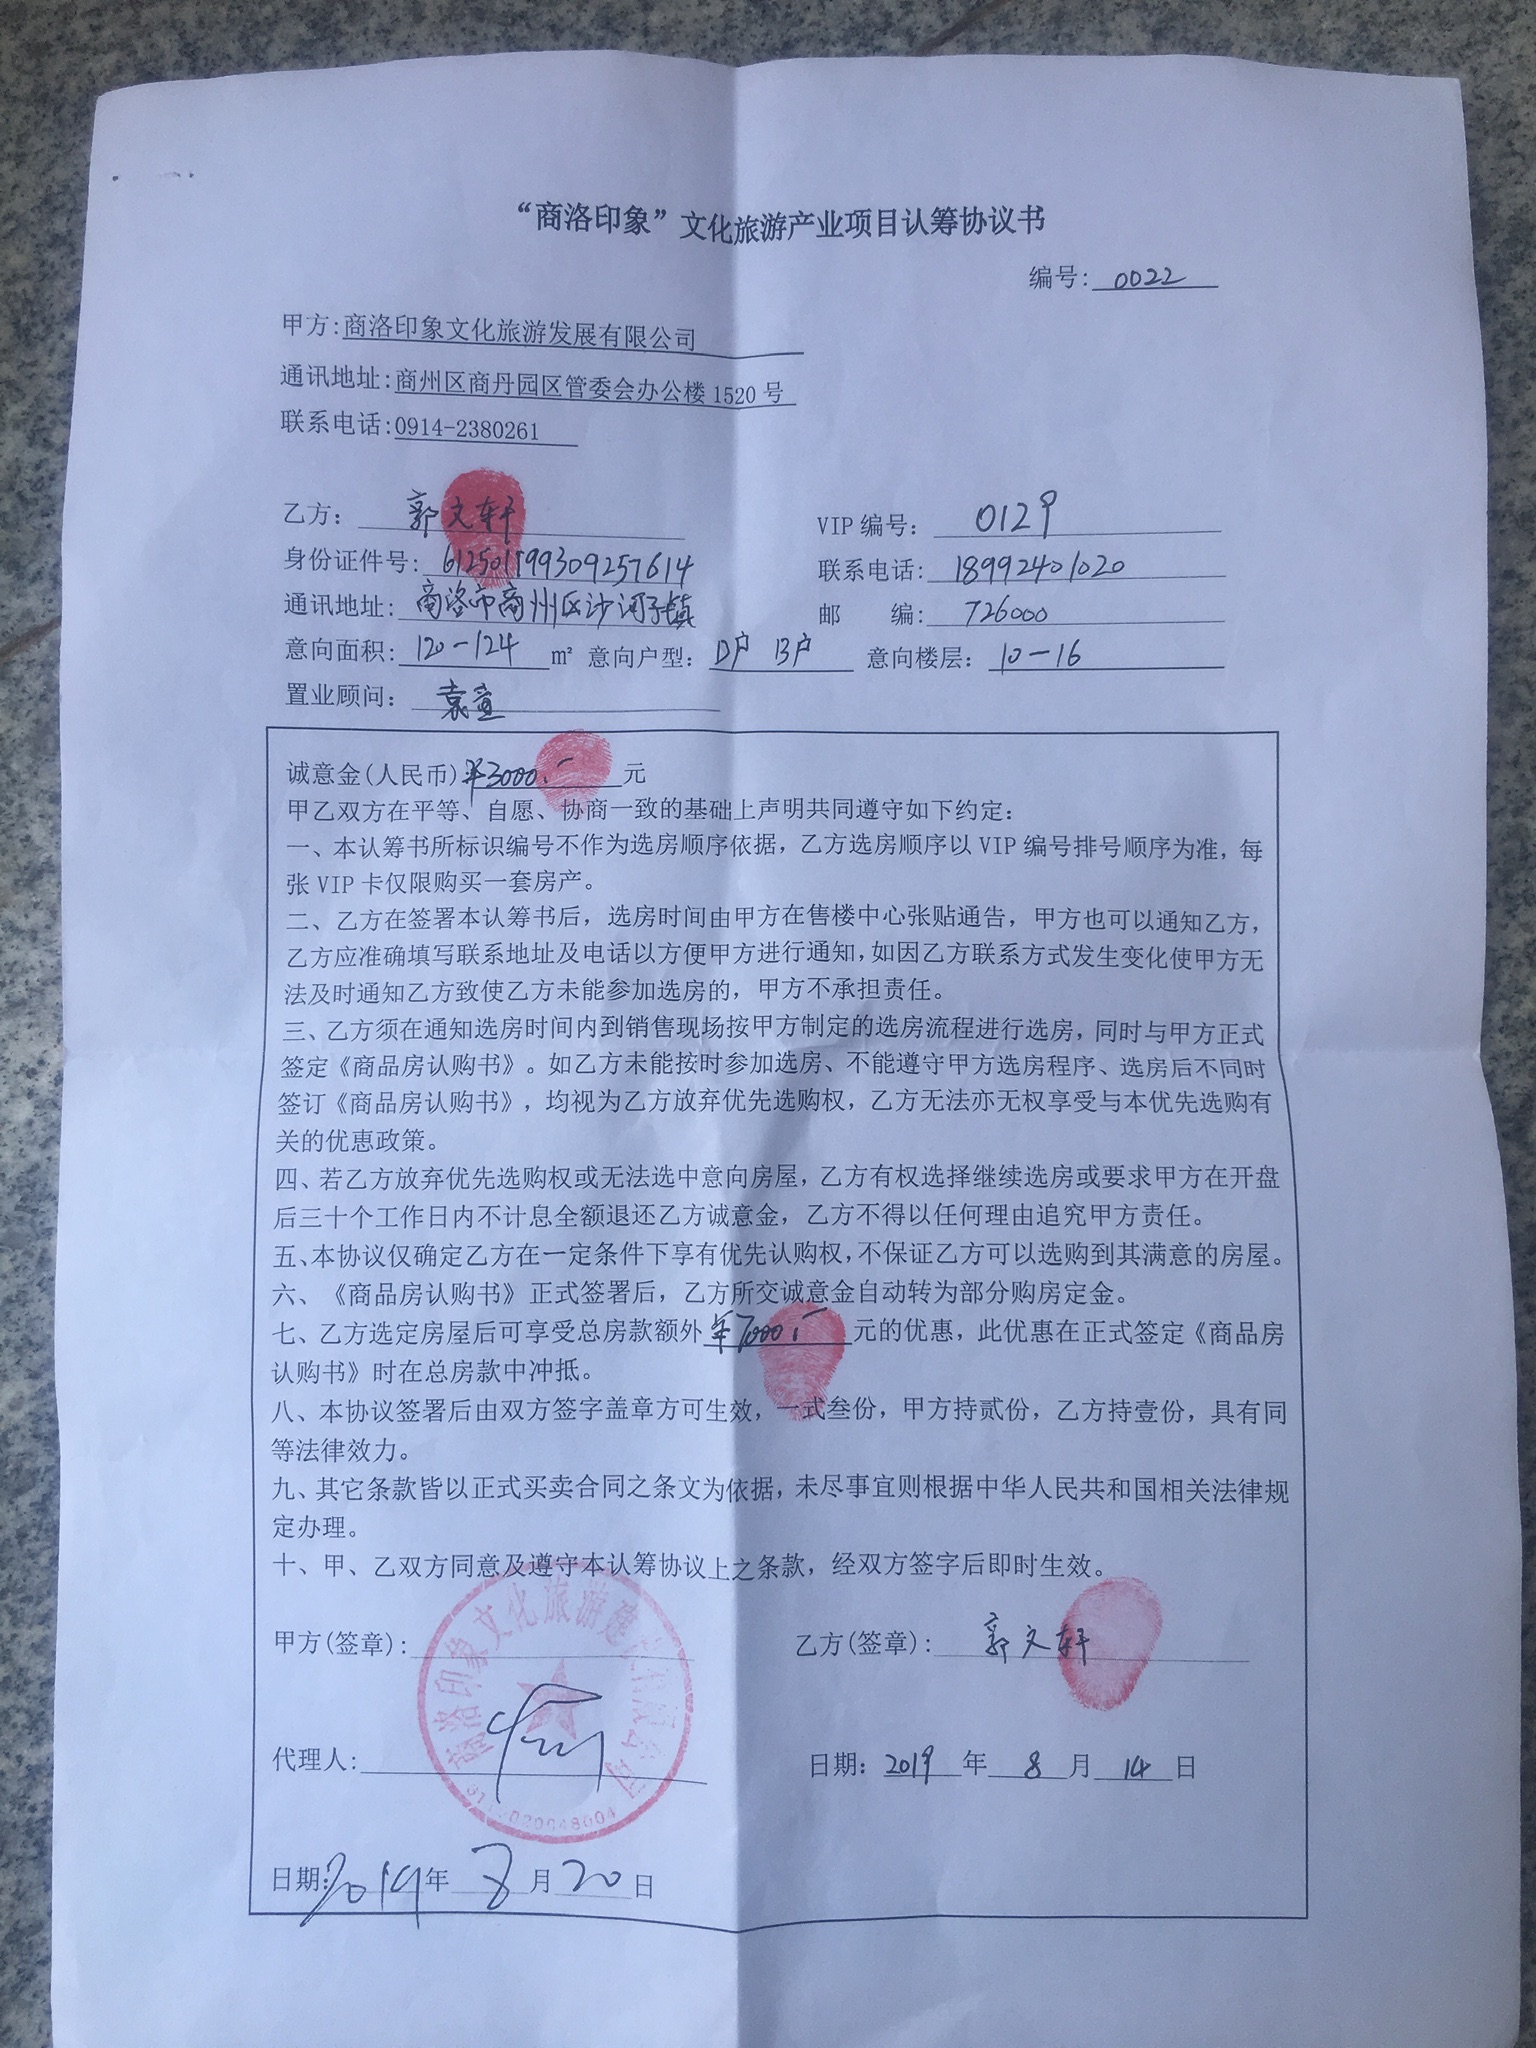 “商洛印象”文化旅游产业项目认筹协议书
编号: 0022
甲方:商洛印象文化旅游发展有限公司
通讯地址:商州区商丹园区管委会办公楼 1520 号
联系电话:0914-2380261
乙方: 郭文轩 VIP 编号: 0129
身份证件号: 612501199309257614 联系电话: 18992401020
通讯地址: 商洛市商州区沙河子镇 邮 编: 726000
意向面积: 120-124 ㎡ 意向户型: D户 B户 意向楼层: 10-16
置业顾问: 袁
诚意金(人民币)¥3000.- 元
甲乙双方在平等、自愿、协商一致的基础上声明共同遵守如下约定:
一、本认筹书所标识编号不作为选房顺序依据,乙方选房顺序以 VIP 编号排号顺序为准,每
张 VIP 卡仅限购买一套房产。
二、乙方在签署本认筹书后,选房时间由甲方在售楼中心张贴通告,甲方也可以通知乙方,
乙方应准确填写联系地址及电话以方便甲方进行通知,如因乙方联系方式发生变化使甲方无
法及时通知乙方致使乙方未能参加选房的,甲方不承担责任。
三、乙方须在通知选房时间内到销售现场按甲方制定的选房流程进行选房,同时与甲方正式
签定《商品房认购书》。如乙方未能按时参加选房、不能遵守甲方选房程序、选房后不同时
签订《商品房认购书》,均视为乙方放弃优先选购权,乙方无法亦无权享受与本优先选购有
关的优惠政策。
四、若乙方放弃优先选购权或无法选中意向房屋,乙方有权选择继续选房或要求甲方在开盘
后三十个工作日内不计息全额退还乙方诚意金,乙方不得以任何理由追究甲方责任。
五、本协议仅确定乙方在一定条件下享有优先认购权,不保证乙方可以选购到其满意的房屋。
六、《商品房认购书》正式签署后,乙方所交诚意金自动转为部分购房定金。
七、乙方选定房屋后可享受总房款额外 ¥7000.- 元的优惠,此优惠在正式签定《商品房
认购书》时在总房款中冲抵。
八、本协议签署后由双方签字盖章方可生效,一式叁份,甲方持贰份,乙方持壹份,具有同
等法律效力。
九、其它条款皆以正式买卖合同之条文为依据,未尽事宜则根据中华人民共和国相关法律规
定办理。
十、甲、乙双方同意及遵守本认筹协议上之条款,经双方签字后即时生效。
甲方(签章): 乙方(签章): 郭文轩
商洛印象文化旅游 有限公司
代理人: 日期: 2019 年 8 月 14 日
日期: 2019 年 8 月 20 日